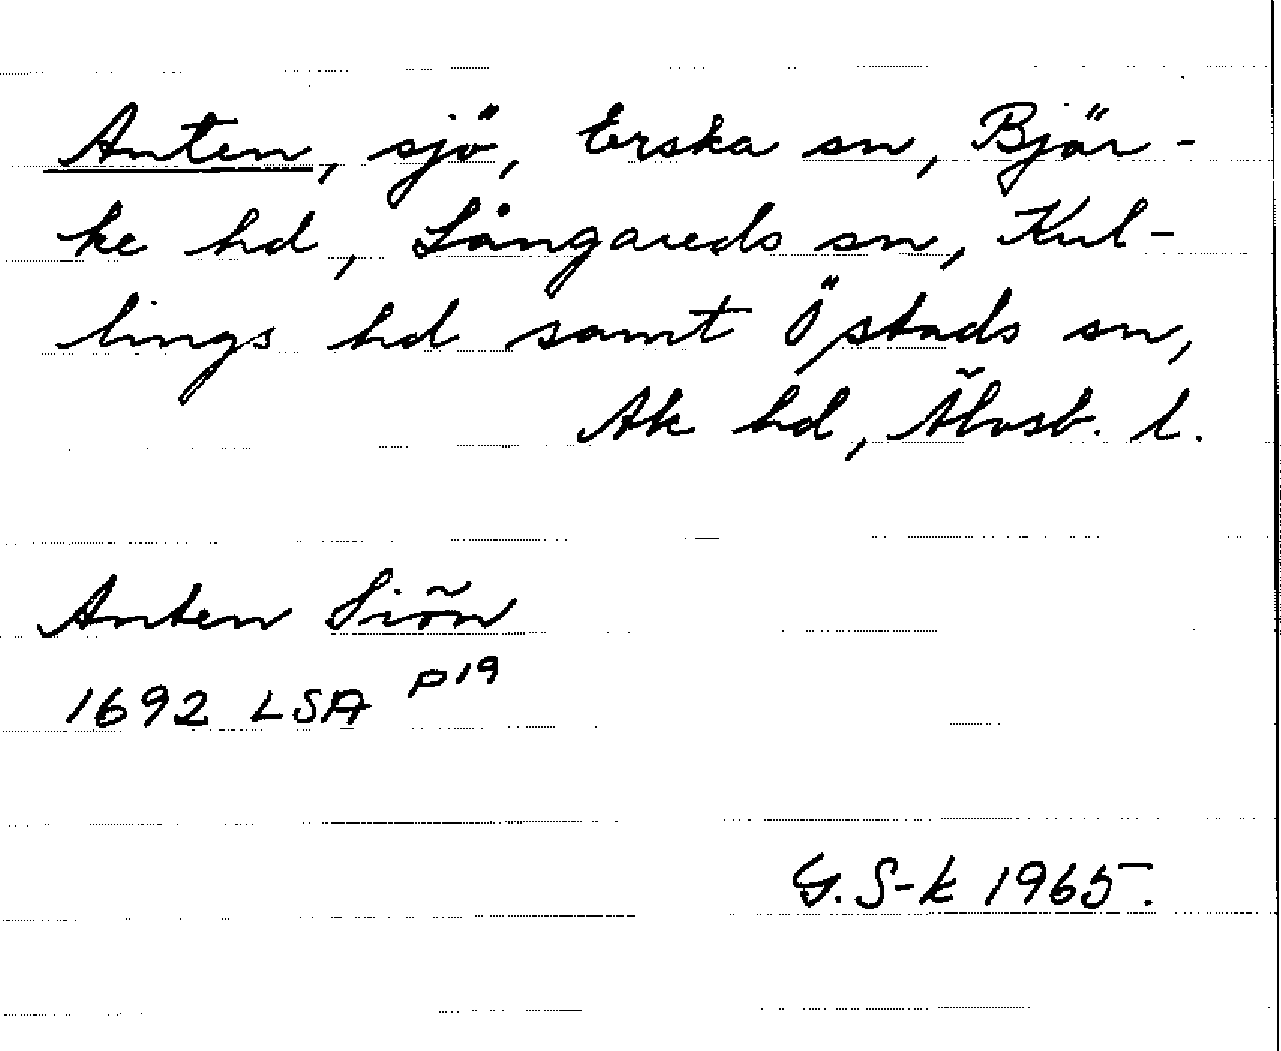 Anten, sjö, Erska sn, Bjär-
ke hd, Långareds sn, Kul-
lings hd samt Östads sn,
Ale hd, Älvsb. l.
Anten Siön
1692 LSA P19
G. S-k 1965.